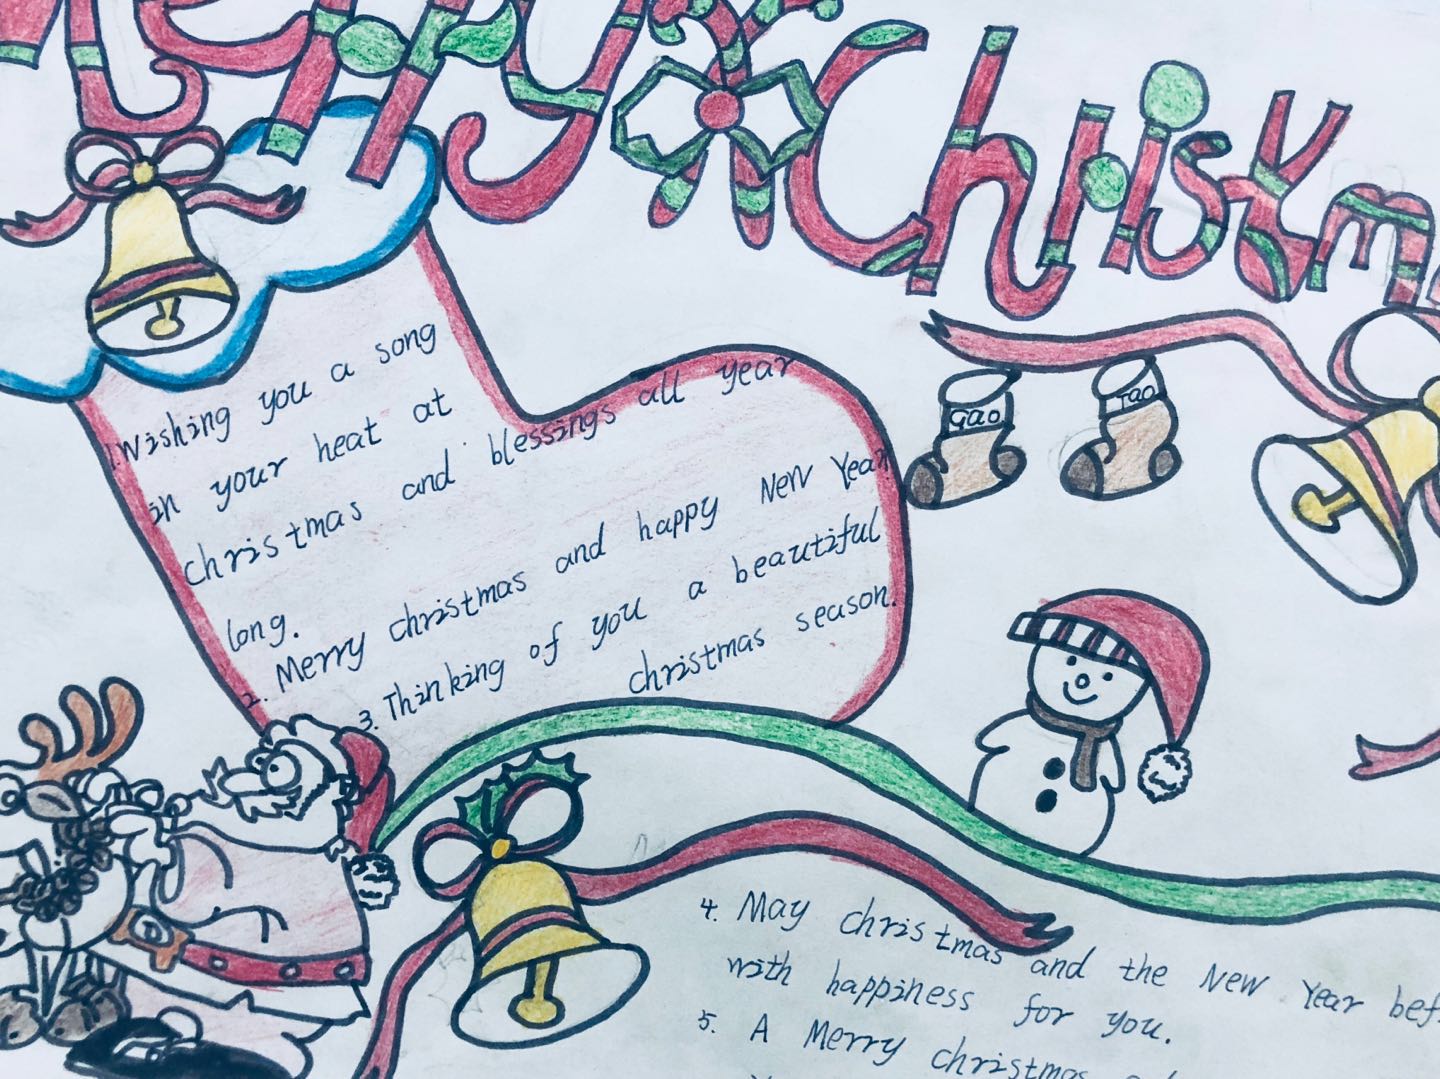 Merry Christma
1. Wishing you a song
in your heat at
christmas and blessings all year
long.
2. Merry christmas and happy New Year
3. Thinking of you a beautiful
christmas season.
Gao
Tao
4. May christmas and the New Year bef
with happiness for you.
5. A Merry christmas